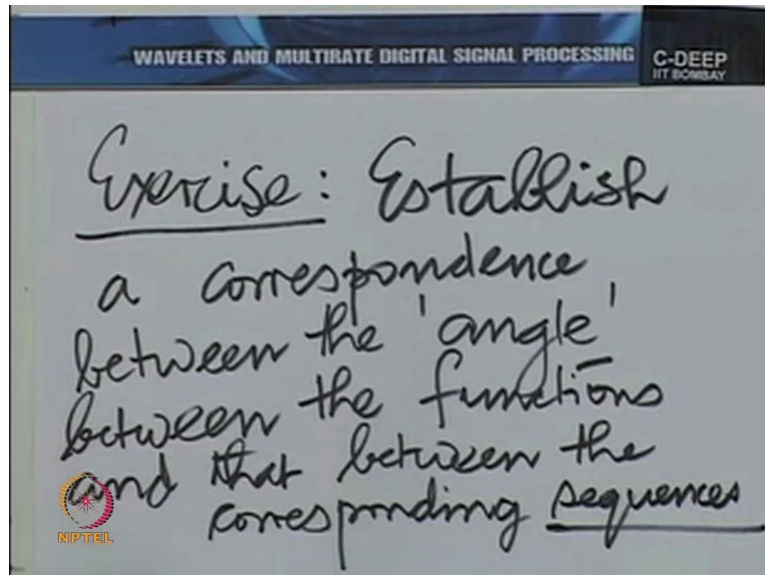 WAVELETS AND MULTIRATE DIGITAL SIGNAL PROCESSING
C-DEEP
IIT BOMBAY
Exercise: Establish
a correspondence
between the 'angle'
between the functions
and that between the
corresponding sequences
NPTEL